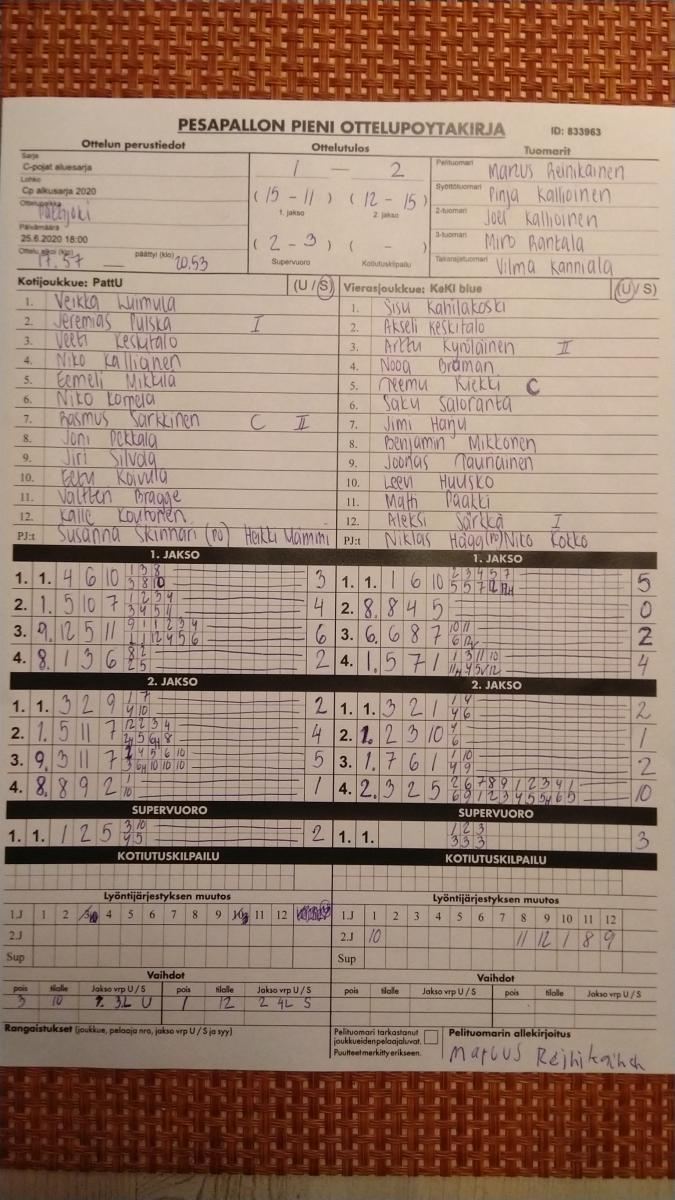 PESAPALLON PIENI OTTELUPOYTAKIRJA ID: 833963
Ottelun perustiedot Ottelutulos Tuomarit
Sarja
C-pojat aluesarja
Lohko
Cp alkusarja 2020
Ottelupaikka
Pattijoki
Päivämäärä
25.6.2020 18:00
Ottelu alkoi (klo) päättyi (klo)
17.57 20.53
1 — 2
(15 - 11) (12 - 15)
1. jakso 2. jakso
(2 - 3) ( - )
Supervuoro Kotiutuskilpailu
Pelituomari Marcus Reinikainen
Syöttötuomari Pinja Kallioinen
2-tuomari Joel Kallioinen
3-tuomari Miro Rantala
Takarajatuomari Vilma Kanniala
Kotijoukkue: PattU (U / S)
1. Veikka Luimula
2. Jeremias Pulska I
3. Veeti Keskitalo
4. Niko Kallianen
5. Eemeli Mikkila
6. Niko Korpela
7. Rasmus Sarkkinen C II
8. Joni Pekkala
9. Jiri Silvola
10. Eetu Koivula
11. Valtteri Bragge
12. Kalle Koutonen
PJ:t Susanna Skinnari (PO) Heikki Vammi
Vierasjoukkue: KeKi blue (U / S)
1. Sisu Kahilakoski
2. Akseli Keskitalo
3. Arttu Kyrölainen II
4. Nooa Braman
5. Teemu Kiekki C
6. Saku Saloranta
7. Jimi Harju
8. Benjamin Mikkonen
9. Joonas Taunainen
10. Leevi Huusko
11. Matti Paakki
12. Aleksi Särkkä I
PJ:t Niklas Hägg (PO) Niko Kokko
1. JAKSO
1. 1. 4 6 10 3
2. 1. 5 10 7 4
3. 9. 12 5 11 6
4. 8. 1 3 6 2
1. JAKSO
1. 1. 1 6 10 5
2. 8. 8 4 5 0
3. 6. 6 8 7 2
4. 1. 5 7 1 4
2. JAKSO
1. 1. 3 2 9 2
2. 1. 5 11 7 4
3. 9. 3 11 7 5
4. 8. 8 9 2 1
2. JAKSO
1. 1. 3 2 1 2
2. 1. 2 3 10 1
3. 1. 7 6 1 2
4. 2. 3 2 5 10
SUPERVUORO
1. 1. 1 2 5 3 10 2
4 5
SUPERVUORO
1. 1. 1 2 3 3
3 3 3
KOTIUTUSKILPAILU
KOTIUTUSKILPAILU
Lyöntijärjestyksen muutos
1.J 1 2 4 5 6 7 8 9 11 12
2.J
Sup
Lyöntijärjestyksen muutos
1.J 1 2 3 4 5 6 7 8 9 10 11 12
2.J 10 11 12 1 8 9
Sup
Vaihdot
pois tilalle Jakso vrp U / S pois tilalle Jakso vrp U / S
3 10 3L U 1 12 2 4L S
Vaihdot
pois tilalle Jakso vrp U / S pois tilalle Jakso vrp U / S
Rangaistukset (joukkue, pelaaja nro, jakso vrp U / S ja syy)
Pelituomari tarkastanut
joukkueidenpelaajaluvat.
Puutteet merkitty erikseen.
Pelituomarin allekirjoitus
Marcus Reinikainen